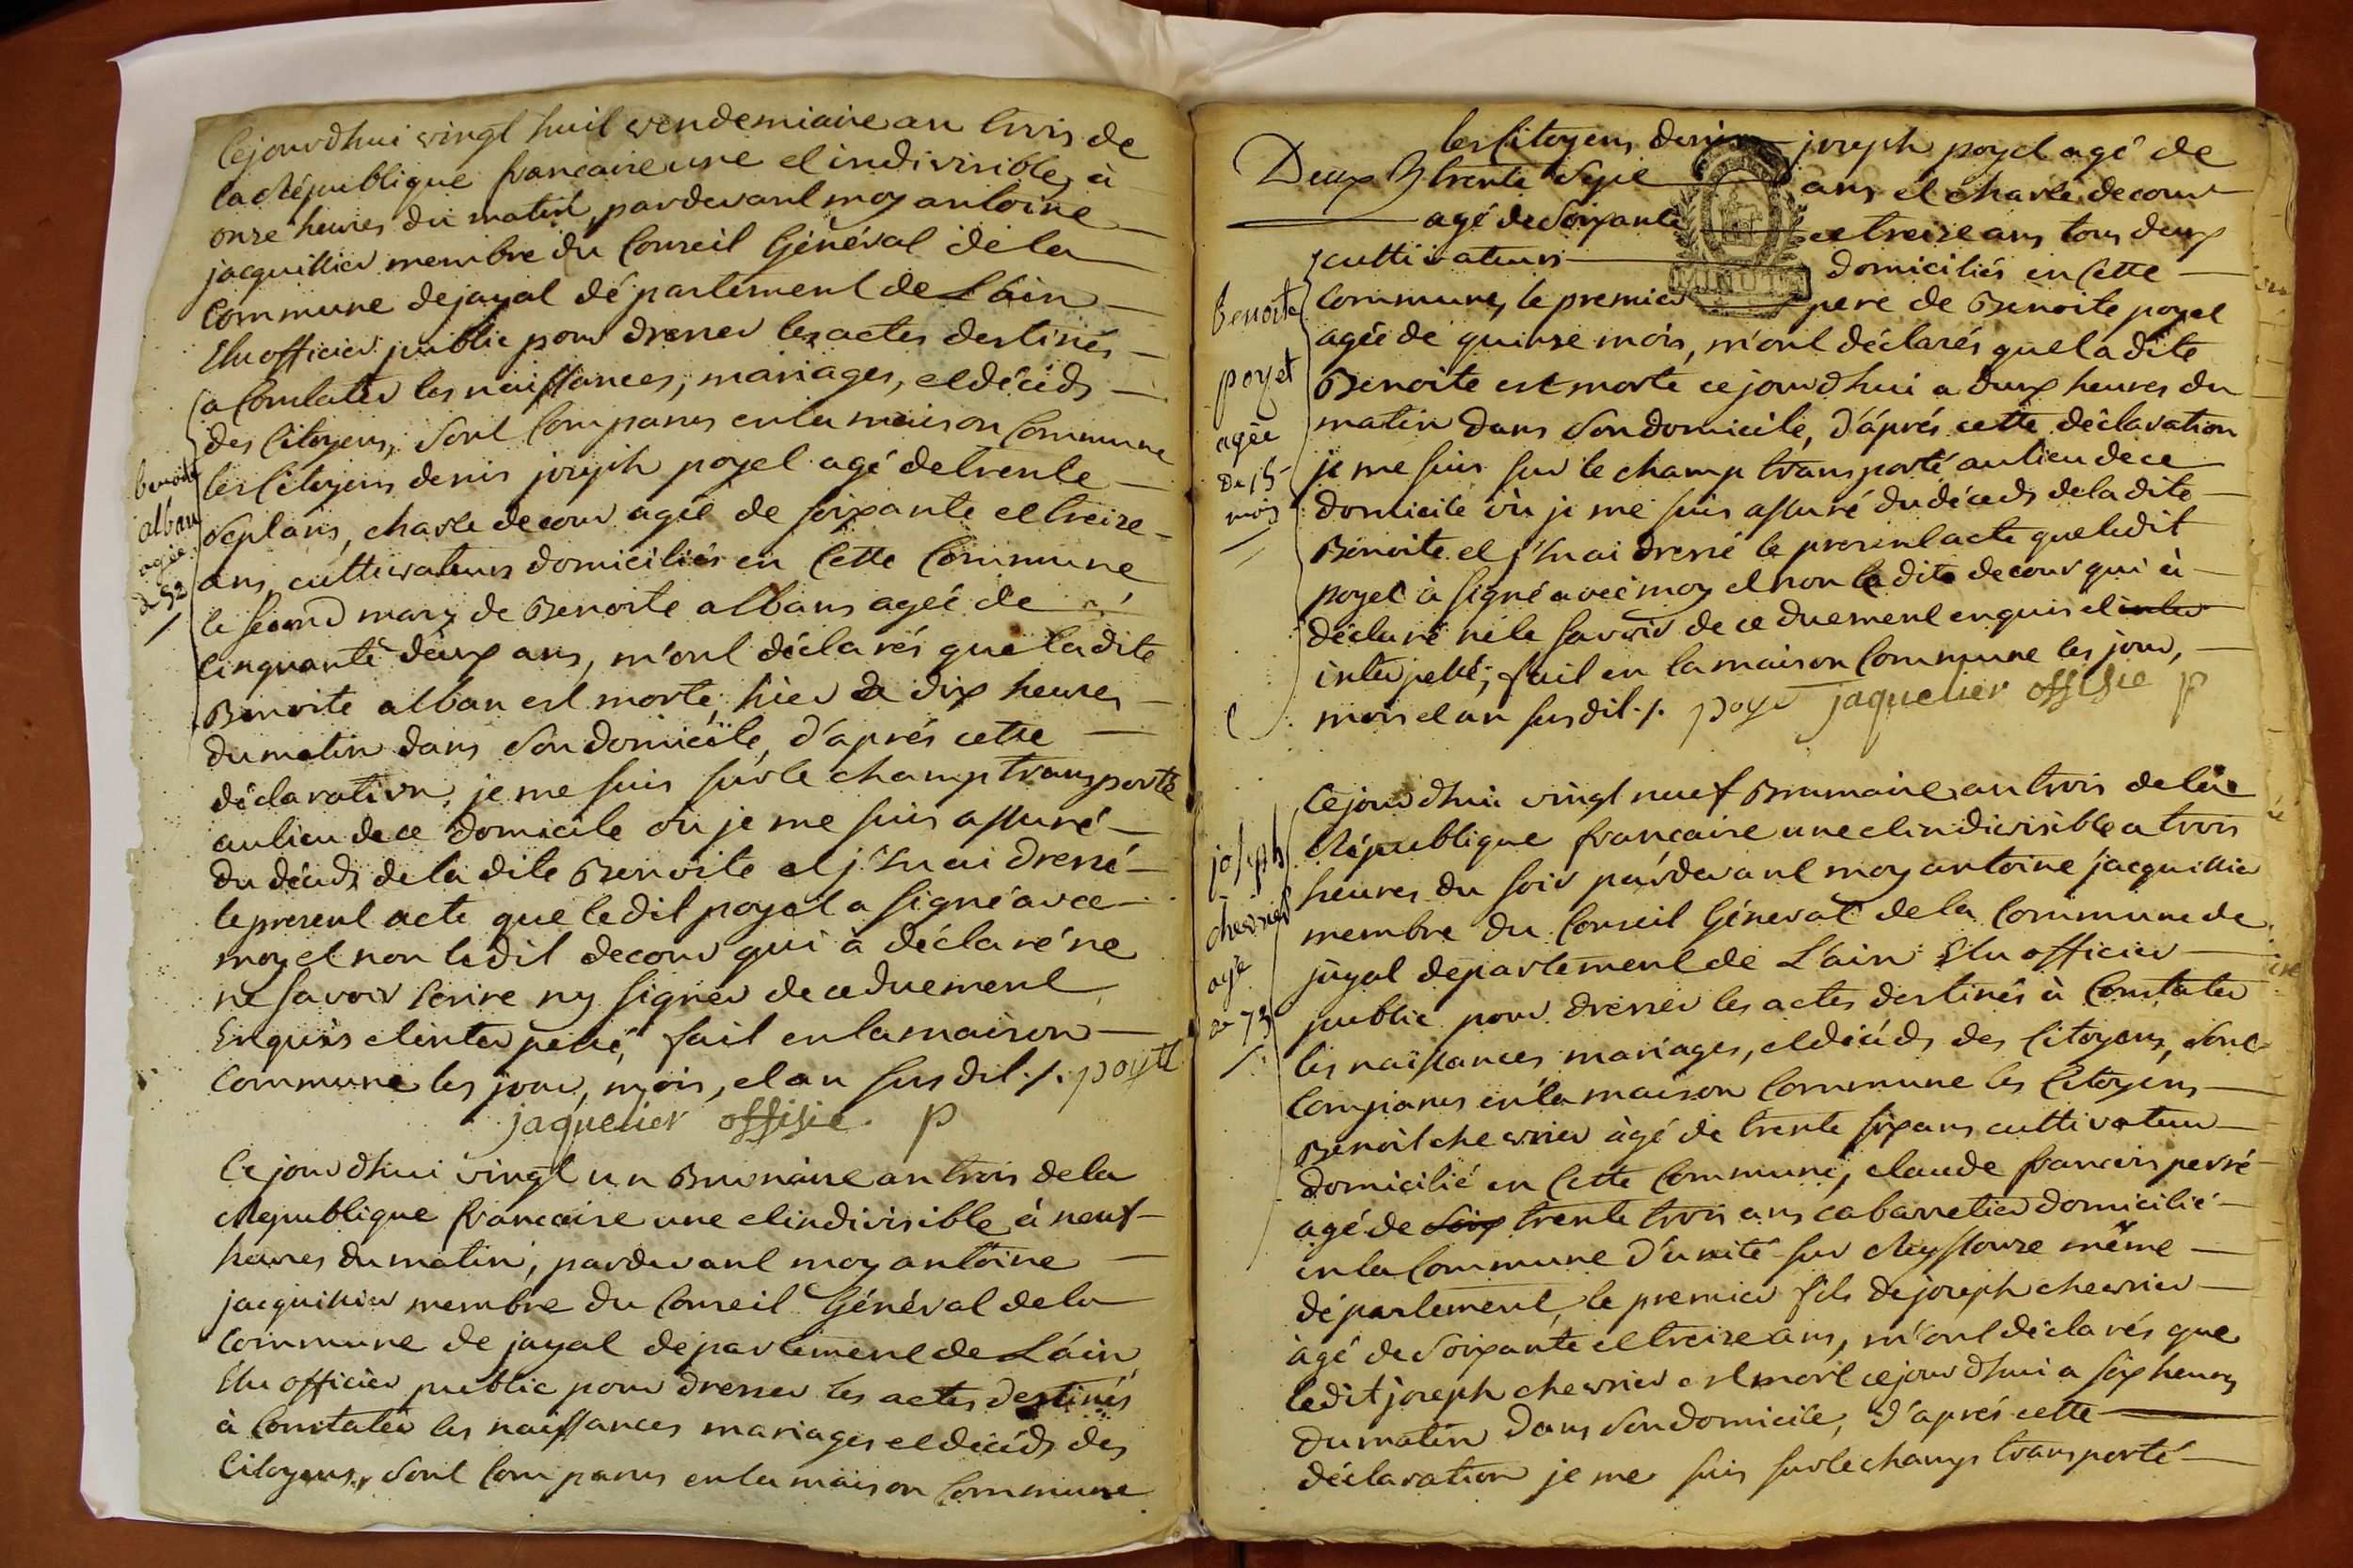 Cejourdhui vingt huit vendemiaire an trois de
la République francaise une et indivisible, à
onze heures du matin, pardevant moy antoine
jacquillier membre du Conseil Général de la
Commune de jayat département de Lain
Elu officier public pour dresser les actes destinés
a Constater les naissances, mariages, et décéds
des Citoyens, sont Comparus en la maison Commune
les Citoyens denis joseph poyet agé de trente
sept ans, charle decour agée de soixante et treize
ans, cultivateurs domiciliés en Cette Commune
le second mary de Benoite albans agée de
Cinquante deux ans, m'ont déclarés que ladite
Benoite alban est morte, hier a dix heures
du matin dans son domicile, d'aprés cette
déclaration, je me suis sur le champ transporté
au lieu de ce domicile ou je me suis assuré
du décéds de la dite Benoite et j'en ai dressé
le present acte que ledit poyet a signé avec
moy et non ledit decour qui à déclaré ne
ne savoir Ecrire ny signer de ce duement
Enquis et interpellé, fait en la maison
Commune les jour, mois, et an susdit ./. poyet
jaquelier offisie p
benoite
alban
agée
de 52
Ce jourdhui vingt un Brumaire an trois de la
République francaise une et indivisible, à neuf
heures du matin, pardevant moy antoine
jacquillier membre du Conseil Général de la
Commune de jayat departement de Láin
Elu officier public pour dresser les actes destinés
à Constater les naissances mariages et décéds des
Citoyens, sont Comparus en la maison Commune
les Citoyens denis joseph poyet agé de
Deux 3 trente sept ans et charle decour
agé de soixante et treize ans tous deux
MINUTE
cultivateurs domiciliés en Cette
Commune, le premier pere de Benoite poyet
agée de quinze mois, m'ont déclarés que la dite
Benoite est morte ce jourdhui a deux heures du
matin dans son domicile, d'áprés cette déclaration
je me suis sur le champ transporté au lieu de ce
domicile où je me suis assuré du décéds de la dite
Benoite et j'en ai dressé le present acte que ledit
poyet à signé avec moy et non le dite decour qui à
déclaré ne le savoir de ce duement enquis et inter
interpellé, fait en la maison Commune les jour,
mois et an susdit ./. poyet jaquelier offisie p
benoite
poyet
agée
De 15
mois
Cejourdhui vingt neuf Brumaire an trois de la
République française une et indivisible a trois
heures du soir pardevant moy antoine jacquillier
membre du Conseil Géneral de la Commune de
jayat departement de Lain Elu officier
public pour dresser les actes destinés à Constater
les naissances, mariages, et décéds des Citoyens, sont
Comparus en la maison Commune les Citoyens
Benoit chevrier àgé de trente six ans cultivateur
domicilié en Cette Commune, claude francois perré
agé de soix trente trois ans cabaretier domicilié
en la Commune d'unité sur Reyssouze même
département, le premier fils de joseph chevrier
àgé de soixante et treize ans, m'ont déclarés que
ledit joseph chevrier est mort ce jourdhui a six heures
du matin dans son domicile, d'aprés cette
déclaration je me suis sur le champ transporté
joseph
chevrier
agé
de 73